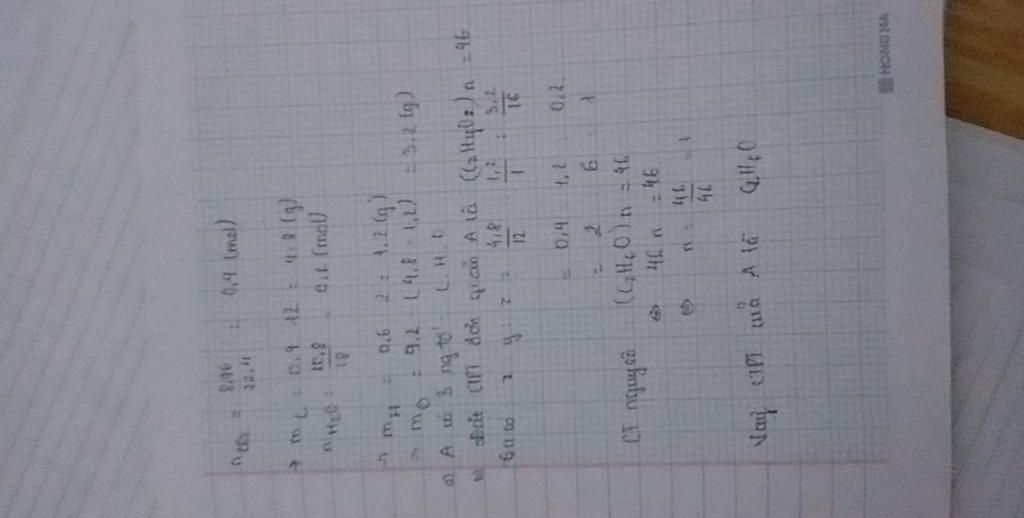 nCO2 = 8,96/22,4 = 0,4 (mol)
→ mC = 0,4 . 12 = 4,8 (g)
nH2O = 10,8/18 = 0,6 (mol)
→ mH = 0,6 . 2 = 1,2 (g)
→ mO = 9,2 - (4,8 + 1,2) = 3,2 (g)
a) A có 3 ng tố C, H, O
b) Đặt CTPT đơn giản A là (CxHyOz)n = 46
Ta có: x : y : z = 4,8/12 : 1,2/1 : 3,2/16
= 0,4 : 1,2 : 0,2
= 2 : 6 : 1
CT nguyên: (C2H6O)n = 46
⇔ 46 . n = 46
⇔ n = 46/46 = 1
Vậy CTPT của A là C2H6O
HONG HA